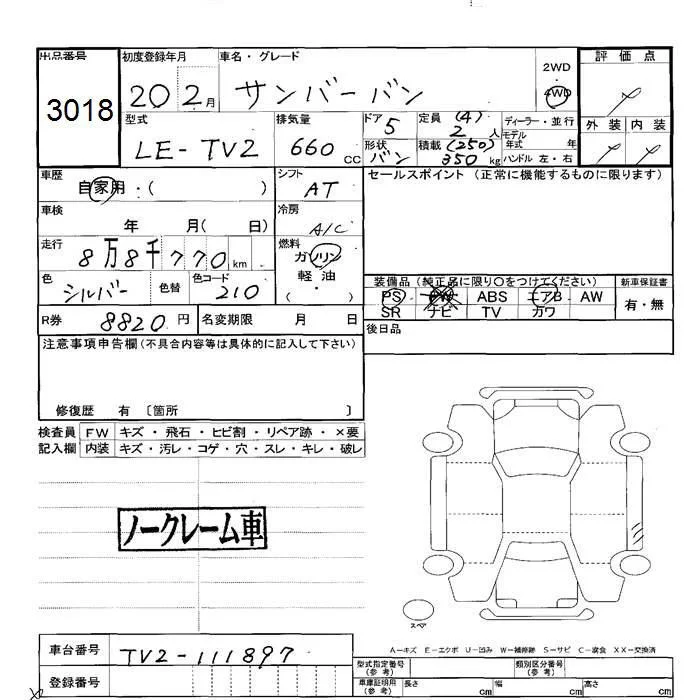 出品番号 初度登録年月 車名・グレード 2WD 評価点
3018 20 2月 サンバーバン 4WD
型式 排気量 ドア 定員 (4) ディーラー・並行 外装 内装
LE-TV2 660CC 5 2人 モデル年式 年
形状 積載 (250)
バン 350kg ハンドル 左・右
車歴 シフト セールスポイント (正常に機能するものに限ります)
自家用・( ) AT
車検 冷房
年 月( 日) A/C
走行 燃料
8万8千770km ガソリン
色 色コード 軽油
シルバー 色替 210 ( ・ )
装備品 (純正品に限り○をつけてください) 新車保証書
PS PW ABS エアB AW 有・無
SR ナビ TV カワ
R券 8820円 名変期限 月 日
後日品
注意事項申告欄(不具合内容等は具体的に記入して下さい)
修復歴 有 〔箇所 〕
検査員 FW キズ・飛石・ヒビ割・リペア跡・×要
記入欄 内装 キズ・汚レ・コゲ・穴・スレ・キレ・破レ
ノークレーム車
スペア
A−キズ E−エクボ U−凹み W−補修跡 S−サビ C−腐食 XX−交換済
車台番号 TV2-111897
型式指定番号(参考) 類別区分番号(参考)
登録番号
車庫証明用(参考) 長さ cm 幅 cm 高さ cm